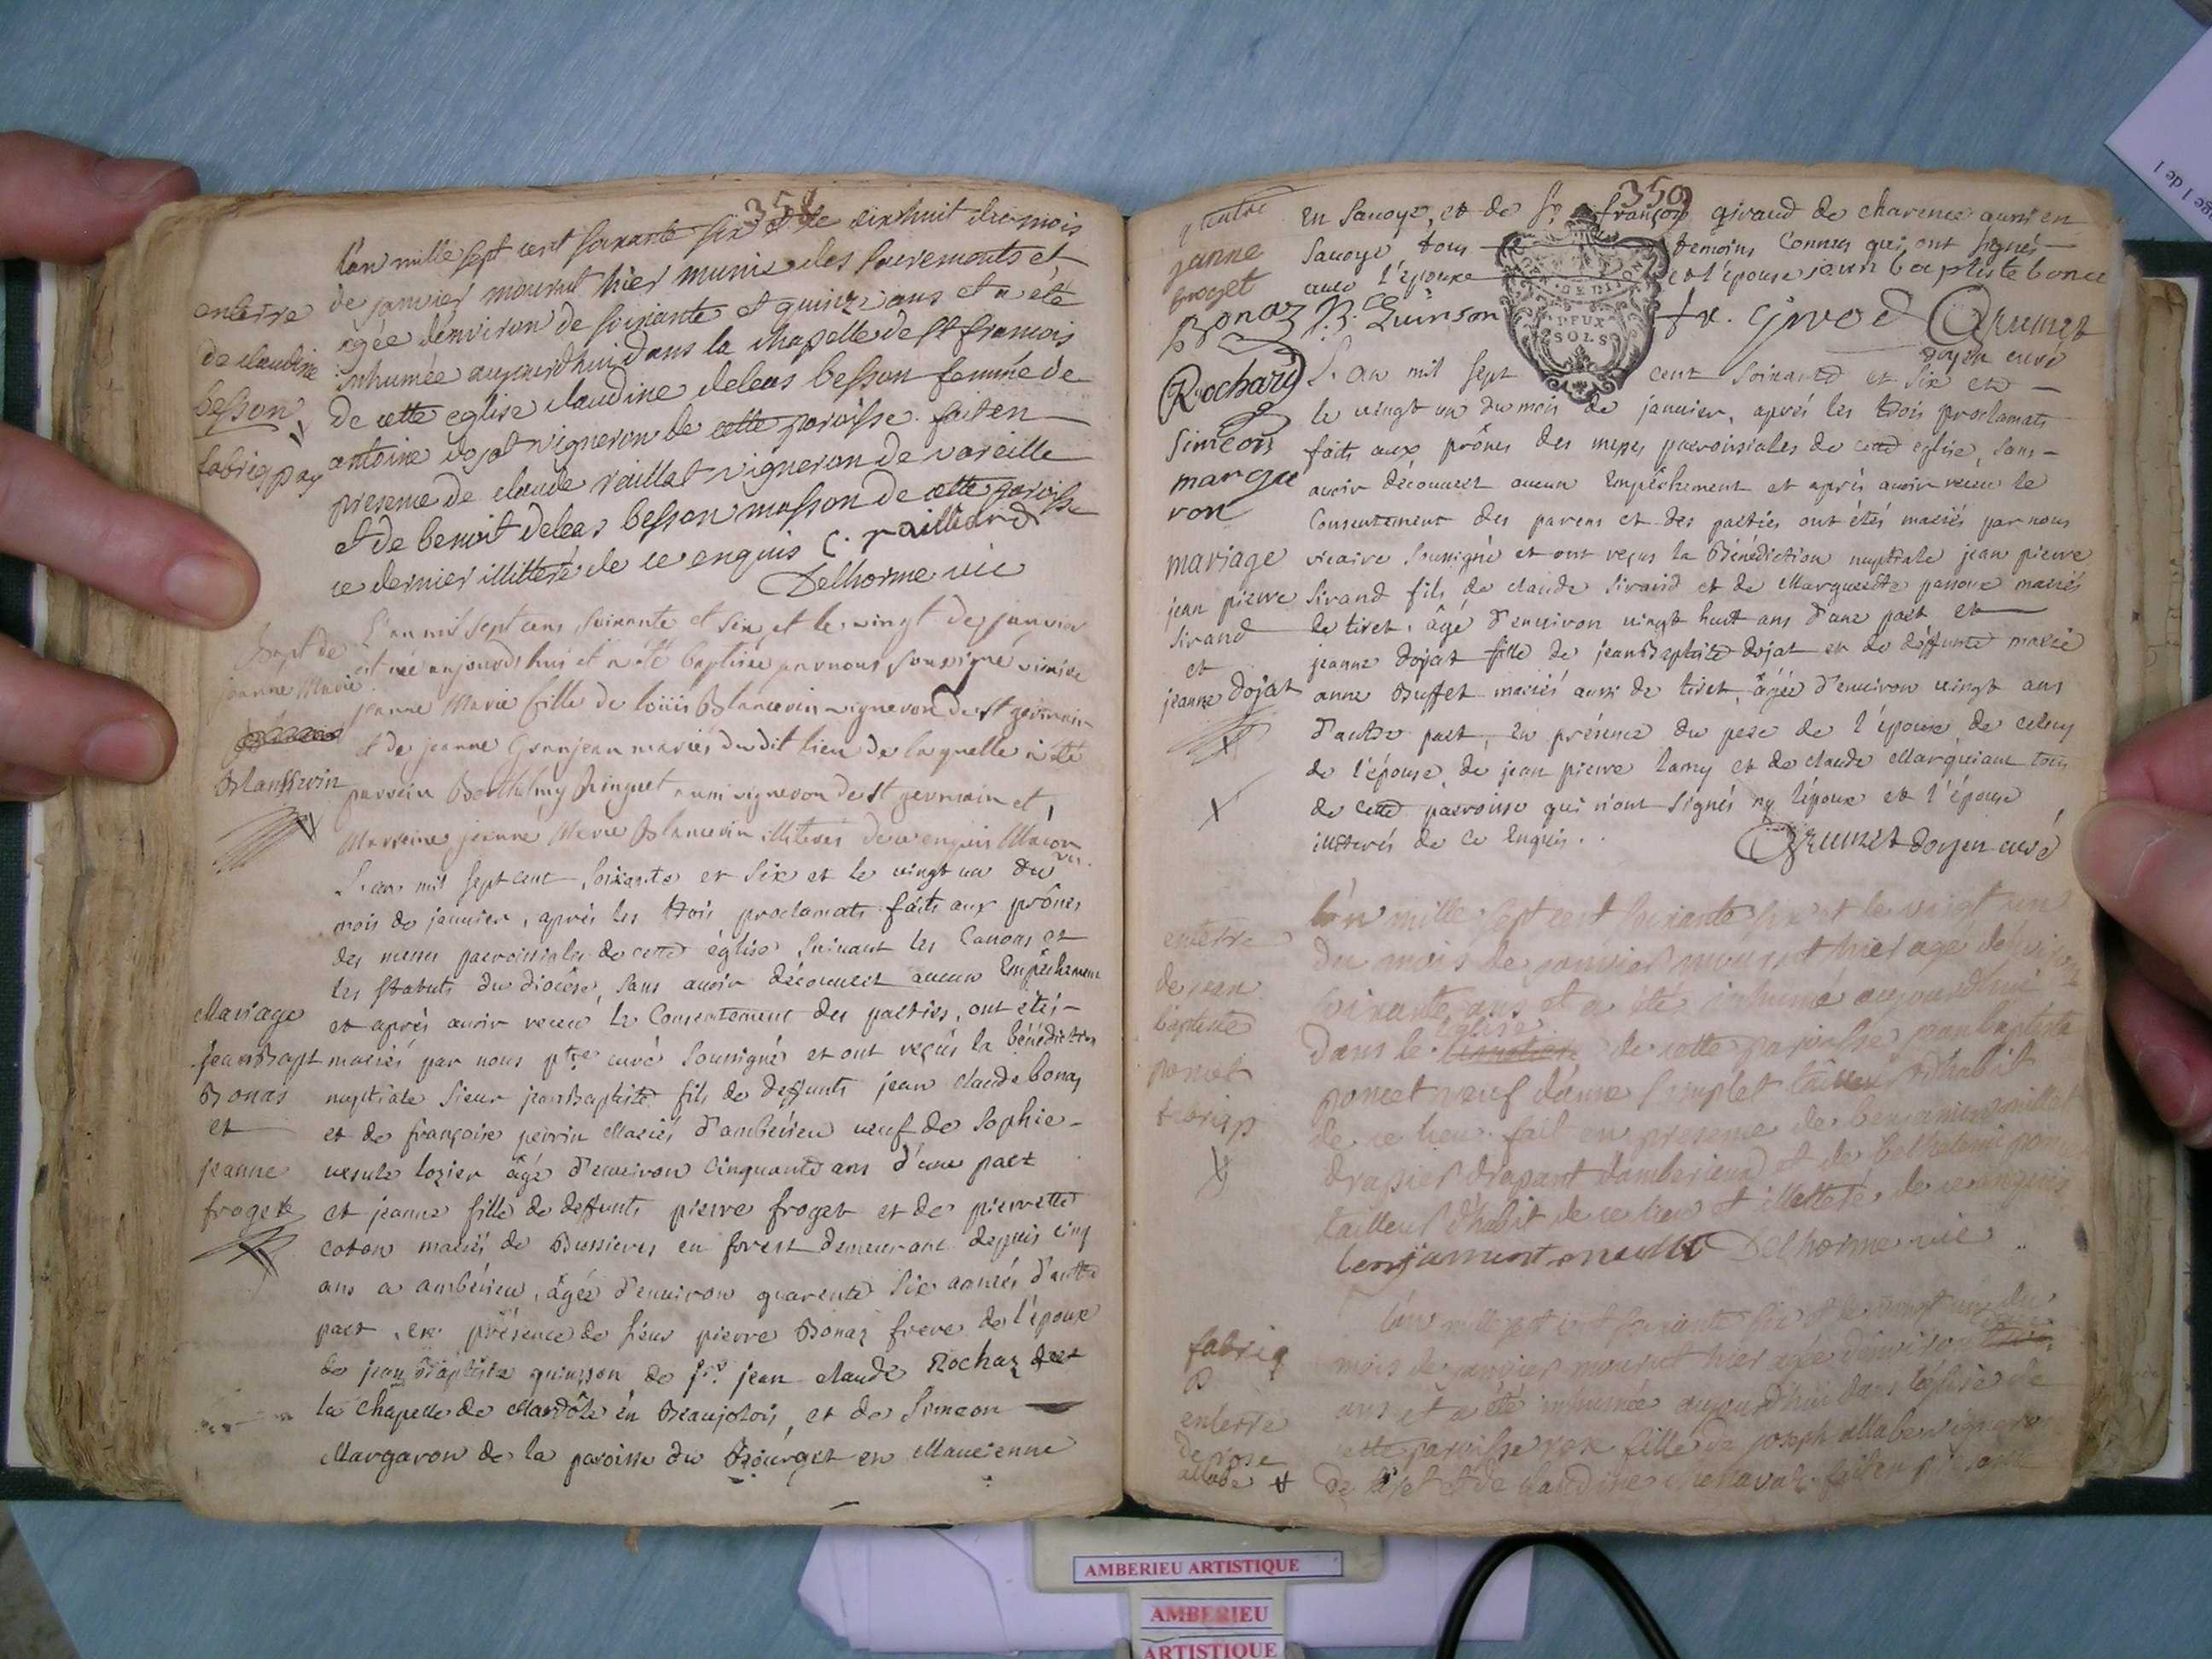 358
l'an mille sept cent soixante six et le dixhuit du mois
de janvier mourut hier munie des sacrements et
agée denviron de soixante et quinze ans et a eté
inhumée aujourdhui dans la chapelle de st francois
de cette eglise claudine deleas besson femme de
antoine dojat vigneron de cette paroisse fait en
presence de claude raillat vigneron de vareille
et de benoit deleas besson masson de cette paroisse
ce dernier illitteré de ce enquis C. raillard
Delhorme vic
enterre
de claudine
besson
fabriq pay
L'an mil sept cens soixante et six et le vingt de janvier
est née aujourdhui et a été baptisée par nous soussigné vicaire
jeanne Marie fille de loüis Blancvin vigneron de st germain
et de jeanne Granjean mariés dudit lieu de laquelle a été
parrein Berthelmy Ringuet aussi vigneron de st germain et
Marreine jeanne Marie Blancvin illiterés de ce enquis
Bapt de
jeanne Marie
Blanssvin
L'an mil sept cent soixante et six et le vingt un du
mois de janvier, aprés les trois proclamats faits aux prônes
des messes paroissiales de cette église, suivant les Canons et
les statuts du diocése, sans avoir découvert aucun Empêchement
et aprés avoir receu le Consentement des parties, ont étés
mariés par nous ptre curé soussigné et ont reçus la bénédiction
nuptiale sieur jean Baptiste fils de deffunts jean claude bonaz
et de françoise perrin Mariés d'ambérieu veuf de sophie
ursule lozier âgé d'environ Cinquante ans d'une part
et jeanne fille de deffunts pierre froget et de pierrette
coton mariés de Bussieres en forest demeurant depuis cinq
ans a ambérieu, âgée d'environ quarente six années d'autre
part, en présence de sieur pierre Bonaz frere de l'époux
de jean Baptiste guinson de sr. jean claude Rochaz
la Chapelle de Mardôre en Beaujolois, et de Simeon
Margaron de la paroisse du Bourget en Maurienne
Mariage
jean Bapt
Bonas
et
jeanne
froget
359
janne
froget
en Savoye, et de Sr. françois giraud de charence aussi en
Savoye tous temoins Connus qui ont signés
avec l'époux et l'épouse jean baptiste bonaz
P Bonaz J. B. Guinson fr. girod Grumet
doyen curé
Rochard
Simeon
margaron
L'an mil sept cent soixante et six et
le vingt un du mois de janvier, aprés les trois proclamats
faits aux prônes des messes paroissiales de cette eglise, sans
avoir découvert aucun Empêchement et aprés avoir receu le
Consentement des parens et des parties ont étés mariés par nous
vicaire soussigné et ont reçus la Bénédiction nuptiale jean pierre
Sirand fils de claude Sirand et de Marguerite mariés
de tiret, âgé d'environ vingt huit ans d'une part et
jeanne dojat fille de jean Baptiste dojat et de deffunte marie
anne Buffet mariés aussi de tiret, âgée d'environ vingt ans
d'autre part, en présence du pere de l'époux de celuy
de l'épouse, de jean pierre lamy et de claude Marquiant tous
de cette paroisse qui n'ont signés ny l'époux et l'épouse
illiterés de ce Enquis.
Grumet doyen curé
mariage
jean pierre
Sirand
et
jeanne dojat
l'an mille sept cent soixante six et le vingt un
du mois de janvier mourut hier agé denviron
soixante ans et a été inhumé aujourdhui
dans le eglise de cette paroisse jean baptiste
poncet veuf d'anne Simplet tailleur d'habit
de ce lieu fait en presence de benjamin
drapier drapant damberieux et de belthelemi poncet
tailleur d'habit de ce lieu et illitteré de ce enquis
Delhorme vic
enterre
de jean
baptiste
poncet
fabriq p
l'an mille sept cent soixante six et le vingt un du
mois de janvier mourut hier agée denviron
ans et a été inhumée aujourd'hui dans l'église de
cette paroisse rose fille de joseph allaben vigneron
de tiret et de claudine fait en presence
fabriq
p
enterre
de rose
AMBERIEU ARTISTIQUE
AMBERIEU
ARTISTIQUE